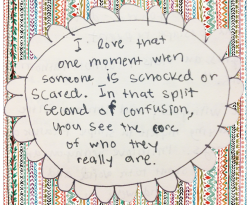 I love that
one moment when
someone is schocked or
scared. In that split
second of confusion,
you see the core
of who they
really are.